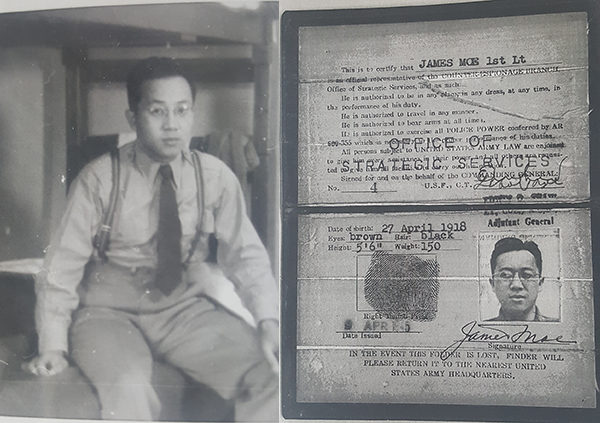 This is to certify that JAMES MOE 1st Lt
is an official representative of the COUNTER-ESPIONAGE BRANCH,
Office of Strategic Services, and as such
He is authorized to be in any place, in any dress, at any time, in
the performance of his duty.
He is authorized to travel in any manner.
He is authorized to bear arms at all times.
He is authorized to exercise all POLICE POWER conferred by AR
of his duties.
All persons subject to UNITED STATES ARMY LAW are enjoined
OFFICE OF
STRATEGIC SERVICES
Signed for and on the behalf of the COMMANDING GENERAL:
No. 4 U.S.F., C.T.
Adjutant General
Date of birth: 27 April 1918
Eyes: brown Hair: black
Height: 5'6" Weight: 150
Right Thumb Print
APR
Date Issued
James Moe
Signature
IN THE EVENT THIS FOLDER IS LOST, FINDER WILL
PLEASE RETURN IT TO THE NEAREST UNITED
STATES ARMY HEADQUARTERS.